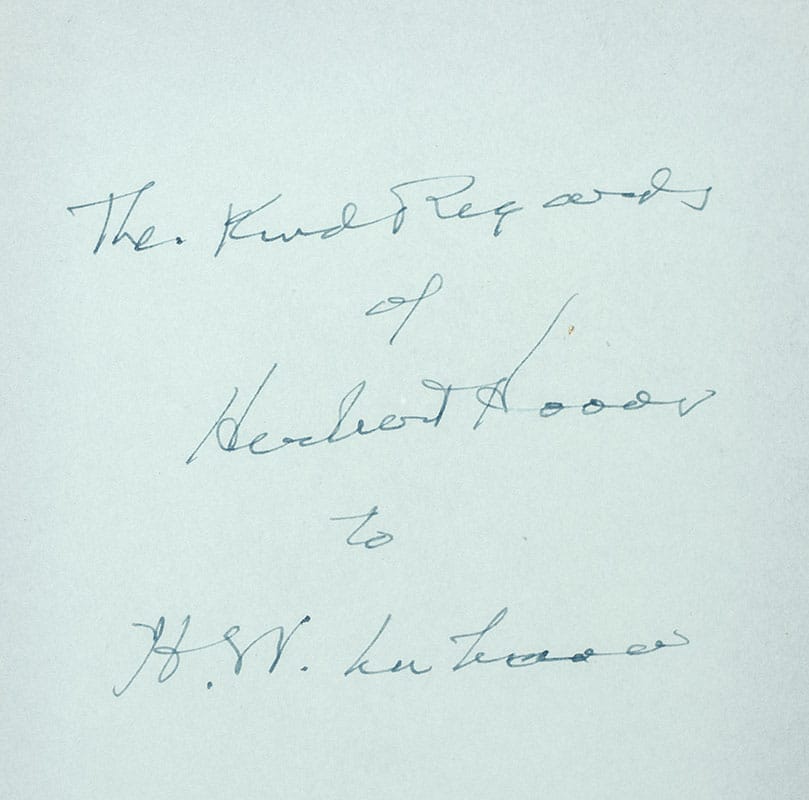 The Kind Regards
of
Herbert Hoover
to
H. W.